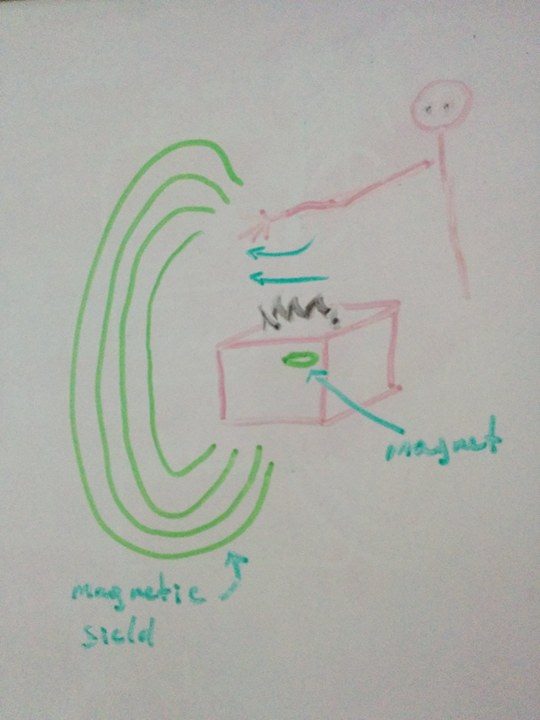 magnet
magnetic
sield